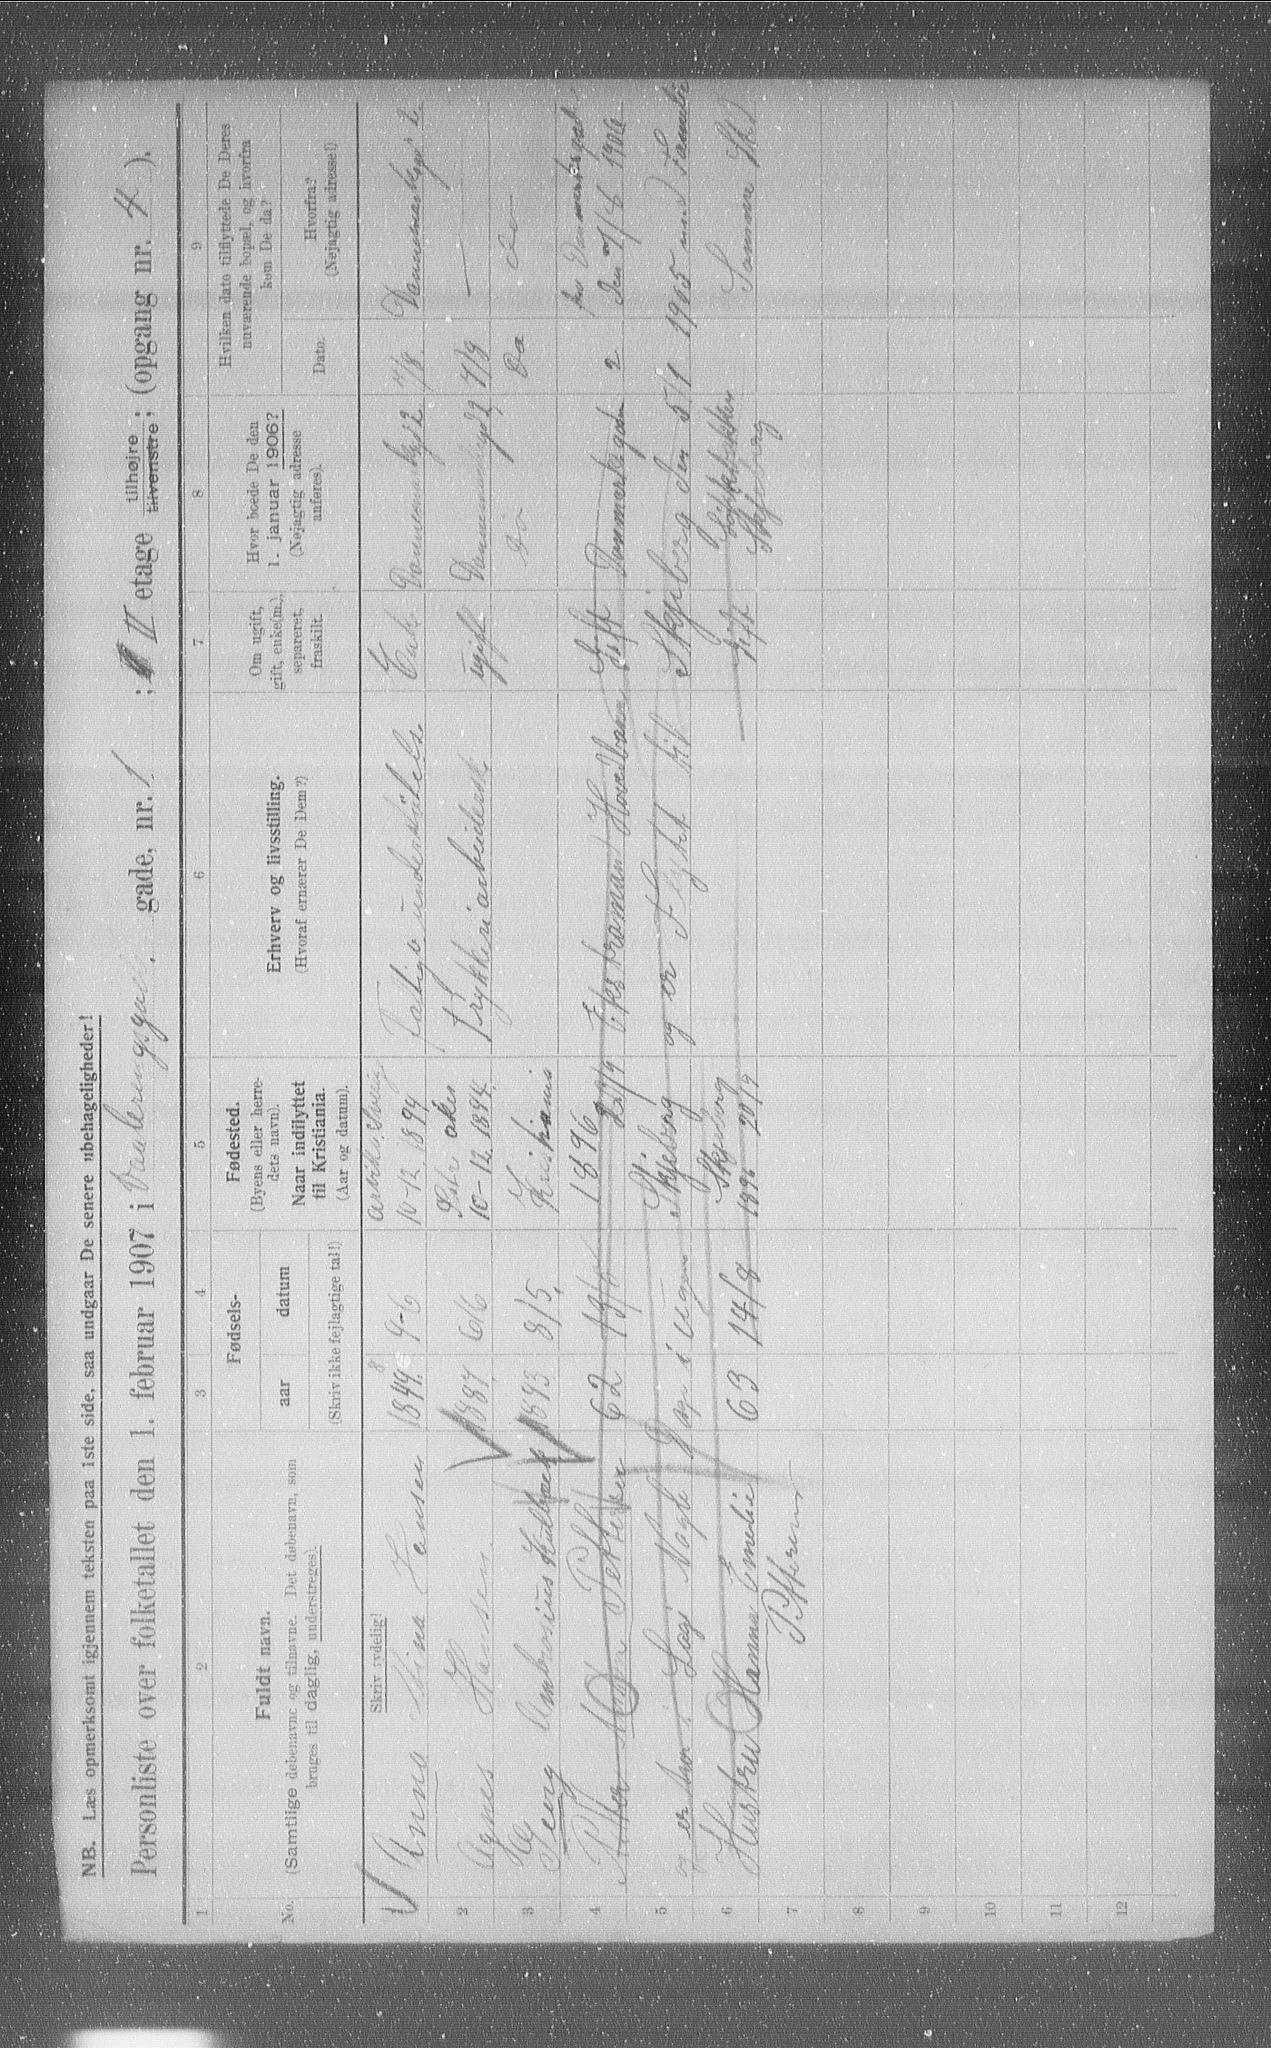 NB. Læs opmerksomt igjennem teksten paa 1ste side, saa undgaar De senere ubehageligheder!
Personliste over folketallet den 1. februar 1907 i Vaalerengsgad. gade, nr. 1 ; II etage tilhøjre ; tilvenstre ; (opgang nr. 4 ).
1 2 3 4 5 6 7 8 9
No.
Fuldt navn.
(Samtlige døbenavne og tilnavne. Det døbenavn, som
bruges til daglig, understreges).
Fødsels-
aar datum
(Skriv ikke fejlagtige tal!)
Fødested.
(Byens eller herre-
dets navn).
Naar indflyttet
til Kristiania.
(Aar og datum).
Erhverv og livsstilling.
(Hvoraf ernærer De Dem?)
Om ugift,
gift, enke(m.),
separeret,
fraskilt.
Hvor boede De den
1. januar 1906?
(Nøjagtig adresse
anføres).
Hvilken dato tilflyttede De Deres
nuværende bopæl, og hvorfra
kom De da?
Dato.
Hvorfra?
(Nøjagtig adresse!)
Skriv tydelig!
Anna Hansen 9-6 10-12. 1894 Fattigunderstøttelse Enke Dannemarksgd 2 7/9 Dannemarksgd 2
2 Agnes Hansen. 1887 6/6 10-12. 1894 Trykkeriarbeiderske ugift 7/9
3 Georg Ambrosius 1893 8/5. Kristiania Do Do
4 Petter Pettersen 62 1896 Ekstramand Hovedbanen Gift Danmarksgaden 2 den 1/6 1906
5 er bor i Dage i ugen Skjeberg og er Flyttet til Skjeberg den 5/1 1905 med Familie
6 Hustru Hanna Emelie 63 14/8 1896 20/9 gift Skjeberg Samme
7 Petterens
8
9
10
11
12